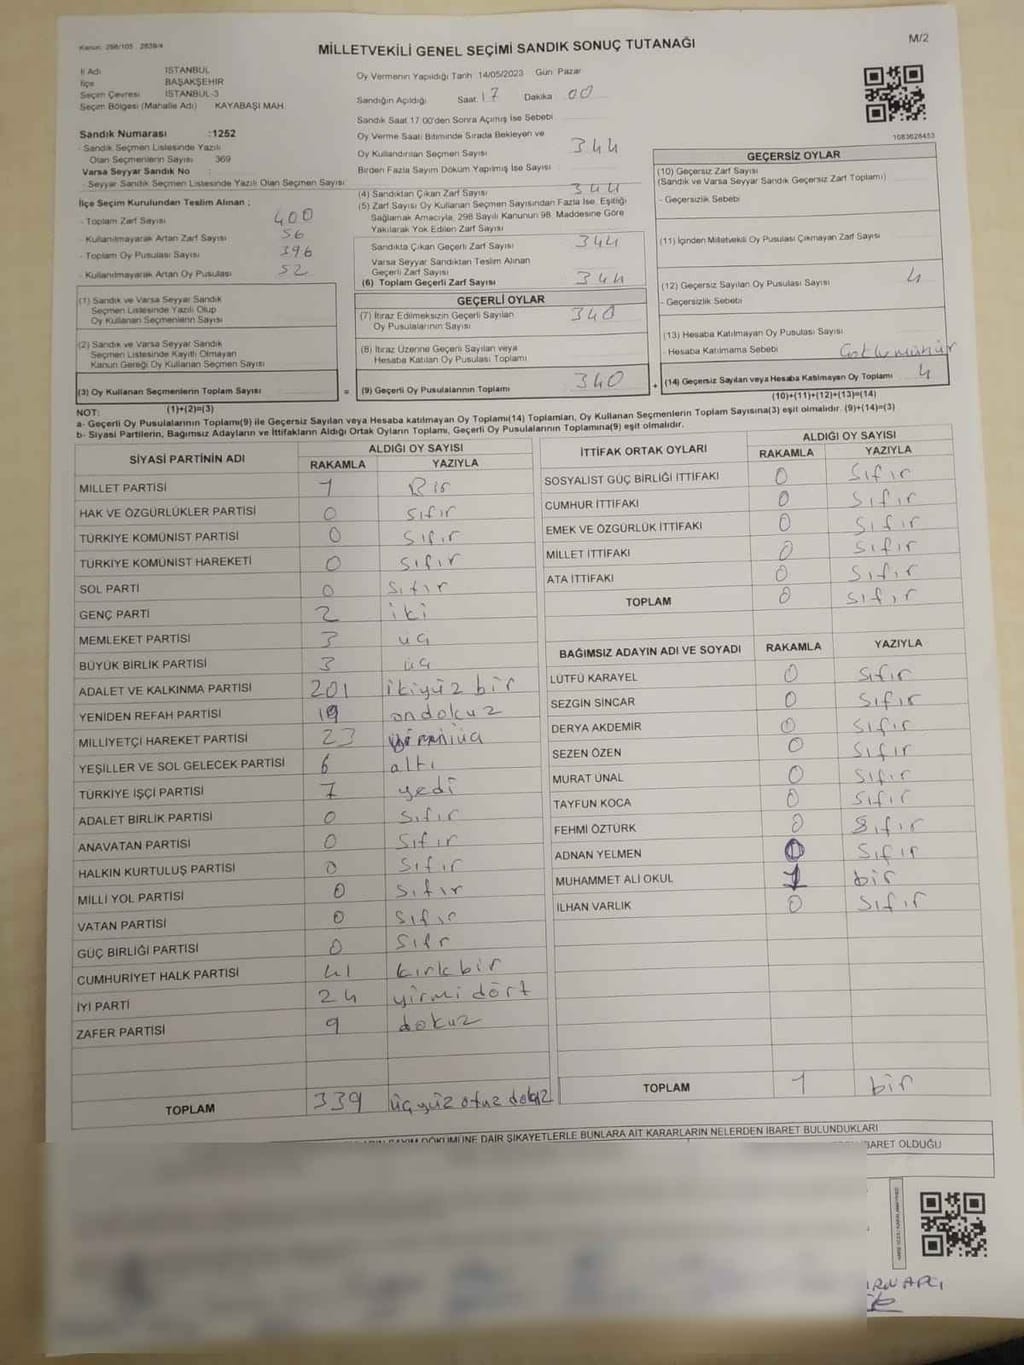 Kanun: 298/105 , 2839/4
MİLLETVEKİLİ GENEL SEÇİMİ SANDIK SONUÇ TUTANAĞI
M/2
İl Adı İSTANBUL
İlçe BAŞAKŞEHİR
Seçim Çevresi İSTANBUL-3
Seçim Bölgesi (Mahalle Adı) KAYABAŞI MAH.
Sandık Numarası :1252
- Sandık Seçmen Listesinde Yazılı
Olan Seçmenlerin Sayısı 369
Varsa Seyyar Sandık No :
- Seyyar Sandık Seçmen Listesinde Yazılı Olan Seçmen Sayısı:
İlçe Seçim Kurulundan Teslim Alınan ;
- Toplam Zarf Sayısı 400
- Kullanılmayarak Artan Zarf Sayısı 56
- Toplam Oy Pusulası Sayısı 396
- Kullanılmayarak Artan Oy Pusulası 52
(1) Sandık ve Varsa Seyyar Sandık
Seçmen Listesinde Yazılı Olup
Oy Kullanan Seçmenlerin Sayısı
(2) Sandık ve Varsa Seyyar Sandık
Seçmen Listesinde Kayıtlı Olmayan
Kanun Gereği Oy Kullanan Seçmen Sayısı
(3) Oy Kullanan Seçmenlerin Toplam Sayısı =
(1)+(2)=(3)
Oy Vermenin Yapıldığı Tarih 14/05/2023 Gün Pazar
Sandığın Açıldığı Saat 17 Dakika 00
Sandık Saat 17:00'den Sonra Açılmış İse Sebebi
Oy Verme Saati Bitiminde Sırada Bekleyen ve
Oy Kullandırılan Seçmen Sayısı 344
Birden Fazla Sayım Döküm Yapılmış İse Sayısı
(4) Sandıktan Çıkan Zarf Sayısı 344
(5) Zarf Sayısı Oy Kullanan Seçmen Sayısından Fazla İse, Eşitliği
Sağlamak Amacıyla, 298 Sayılı Kanunun 98. Maddesine Göre
Yakılarak Yok Edilen Zarf Sayısı
Sandıkta Çıkan Geçerli Zarf Sayısı 344
Varsa Seyyar Sandıktan Teslim Alınan
Geçerli Zarf Sayısı
(6) Toplam Geçerli Zarf Sayısı 344
GEÇERLİ OYLAR
(7) İtiraz Edilmeksizin Geçerli Sayılan
Oy Pusulalarının Sayısı 340
(8) İtiraz Üzerine Geçerli Sayılan veya
Hesaba Katılan Oy Pusulası Toplamı
(9) Geçerli Oy Pusulalarının Toplamı 340 +
1083628453
GEÇERSİZ OYLAR
(10) Geçersiz Zarf Sayısı
(Sandık ve Varsa Seyyar Sandık Geçersiz Zarf Toplamı)
- Geçersizlik Sebebi
(11) İçinden Milletvekili Oy Pusulası Çıkmayan Zarf Sayısı
(12) Geçersiz Sayılan Oy Pusulası Sayısı 4
- Geçersizlik Sebebi
(13) Hesaba Katılmayan Oy Pusulası Sayısı
- Hesaba Katılmama Sebebi Çoklu mühür
(14) Geçersiz Sayılan veya Hesaba Katılmayan Oy Toplamı 4
(10)+(11)+(12)+(13)=(14)
NOT:
a- Geçerli Oy Pusulalarının Toplamı(9) ile Geçersiz Sayılan veya Hesaba katılmayan Oy Toplamı(14) Toplamları, Oy Kullanan Seçmenlerin Toplam Sayısına(3) eşit olmalıdır. (9)+(14)=(3)
b- Siyasi Partilerin, Bağımsız Adayların ve İttifakların Aldığı Ortak Oyların Toplamı, Geçerli Oy Pusulalarının Toplamına(9) eşit olmalıdır.
SİYASİ PARTİNİN ADI ALDIĞI OY SAYISI
RAKAMLA YAZIYLA
MİLLET PARTİSİ 1 Bir
HAK VE ÖZGÜRLÜKLER PARTİSİ 0 sıfır
TÜRKİYE KOMÜNİST PARTİSİ 0 sıfır
TÜRKİYE KOMÜNİST HAREKETİ 0 sıfır
SOL PARTİ 0 sıfır
GENÇ PARTİ 2 iki
MEMLEKET PARTİSİ 3 üç
BÜYÜK BİRLİK PARTİSİ 3 üç
ADALET VE KALKINMA PARTİSİ 201 ikiyüz bir
YENİDEN REFAH PARTİSİ 19 ondokuz
MİLLİYETÇİ HAREKET PARTİSİ 23 yirmiüç
YEŞİLLER VE SOL GELECEK PARTİSİ 6 altı
TÜRKİYE İŞÇİ PARTİSİ 7 yedi
ADALET BİRLİK PARTİSİ 0 sıfır
ANAVATAN PARTİSİ 0 sıfır
HALKIN KURTULUŞ PARTİSİ 0 sıfır
MİLLİ YOL PARTİSİ 0 sıfır
VATAN PARTİSİ 0 sıfır
GÜÇ BİRLİĞİ PARTİSİ 0 sıfr
CUMHURİYET HALK PARTİSİ 41 kırkbir
İYİ PARTİ 24 yirmi dört
ZAFER PARTİSİ 9 dokuz
TOPLAM 339 üçyüz otuz dokuz
İTTİFAK ORTAK OYLARI ALDIĞI OY SAYISI
RAKAMLA YAZIYLA
SOSYALİST GÜÇ BİRLİĞİ İTTİFAKI 0 sıfır
CUMHUR İTTİFAKI 0 sıfır
EMEK VE ÖZGÜRLÜK İTTİFAKI 0 sıfır
MİLLET İTTİFAKI 0 sıfır
ATA İTTİFAKI 0 sıfır
TOPLAM 0 sıfır
BAĞIMSIZ ADAYIN ADI VE SOYADI RAKAMLA YAZIYLA
LÜTFÜ KARAYEL 0 sıfır
SEZGİN SİNCAR 0 sıfır
DERYA AKDEMİR 0 sıfır
SEZEN ÖZEN 0 sıfır
MURAT ÜNAL 0 sıfır
TAYFUN KOCA 0 sıfır
FEHMİ ÖZTÜRK 0 sıfır
ADNAN YELMEN 0 sıfır
MUHAMMET ALİ OKUL 1 bir
İLHAN VARLIK 0 sıfır
TOPLAM 1 bir
SAYIM DÖKÜMÜNE DAİR ŞİKAYETLERLE BUNLARA AİT KARARLARIN NELERDEN İBARET BULUNDUKLARI
İBARET OLDUĞU